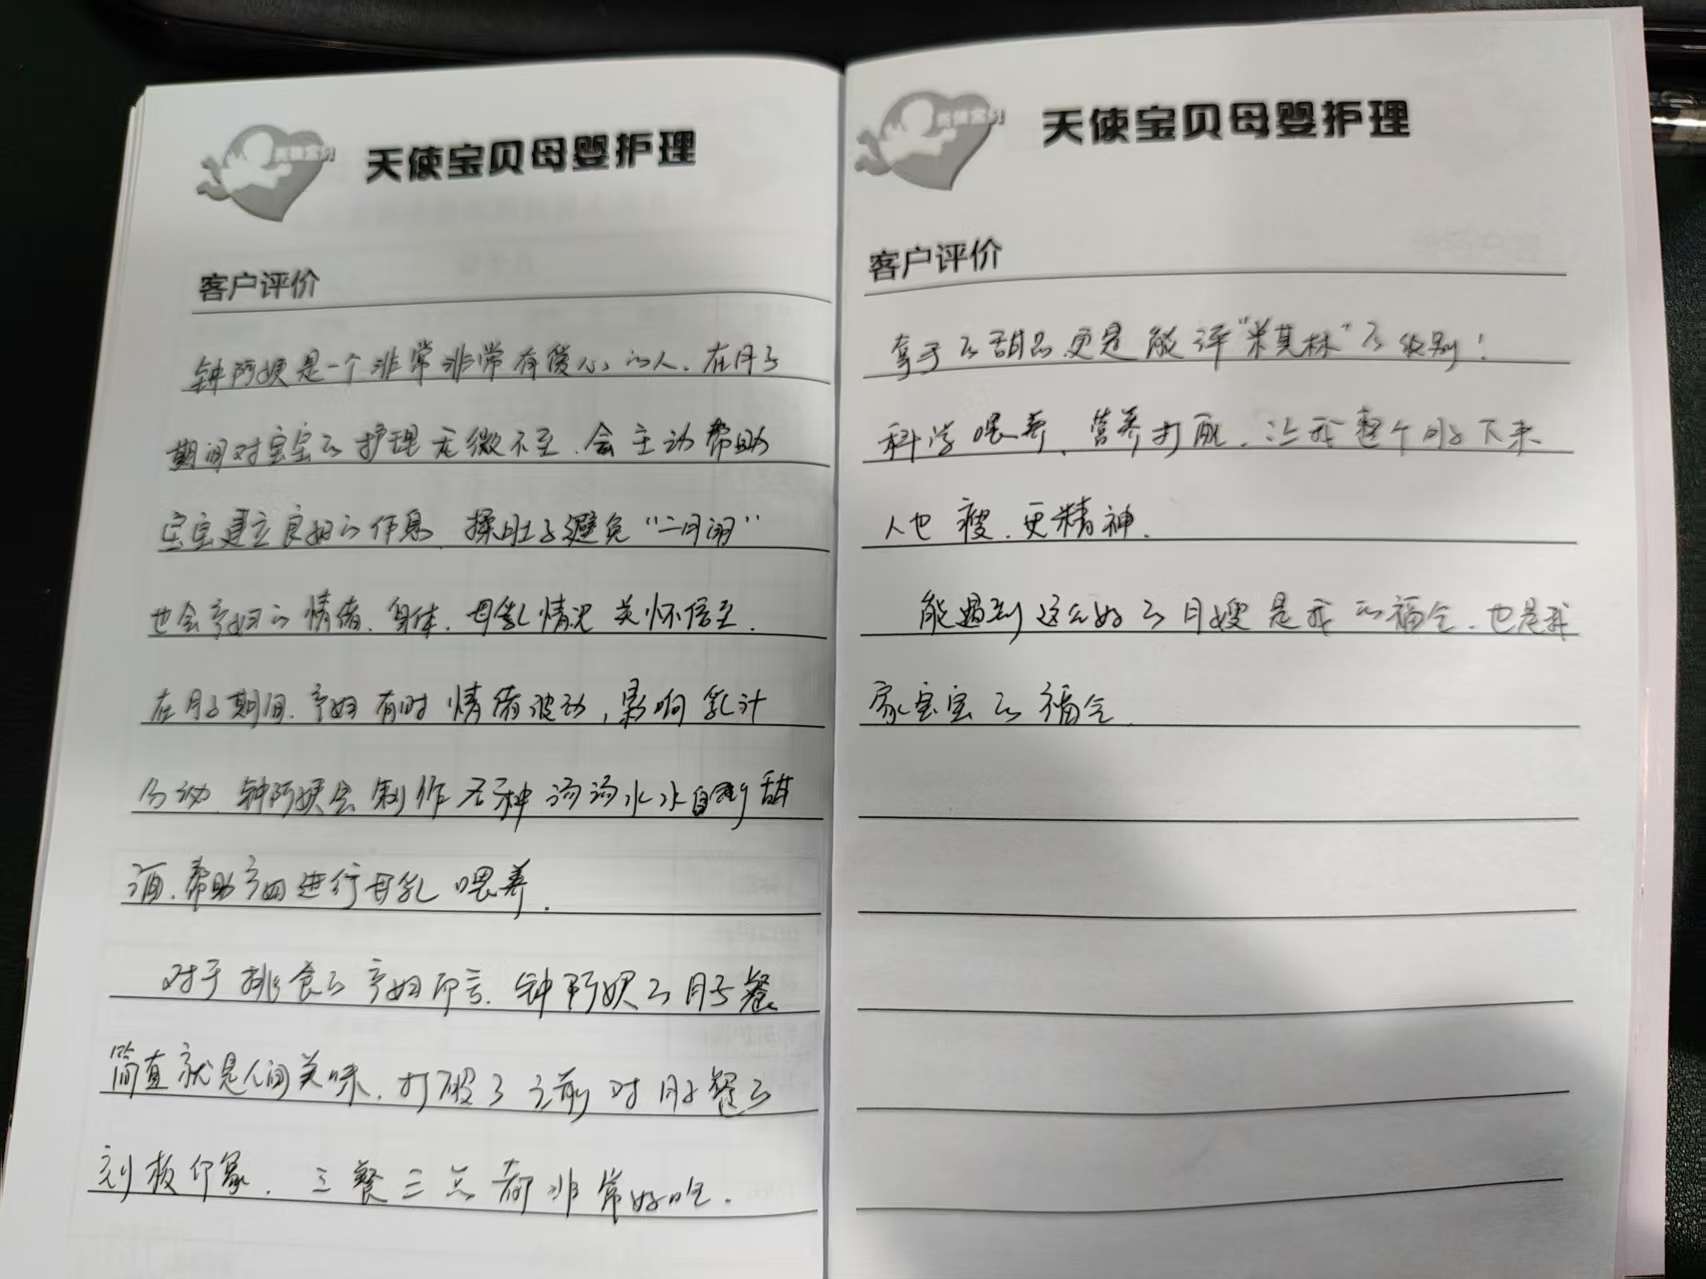 天使宝贝母婴护理
客户评价
钟阿姨是一个非常非常有爱心的人.在月子
期间对宝宝的护理无微不至.会主动帮助
宝宝建立良好的作息.揉肚子避免“二月闹”
也会产妇的情绪、身体、母乳情况关怀倍至.
在月子期间.产妇有时情绪波动,影响乳汁
分泌.钟阿姨会制作各种汤汤水水自制甜
酒.帮助产妇进行母乳喂养.
对于挑食的产妇而言.钟阿姨的月子餐
简直就是人间美味.打破了之前对月子餐的
刻板印象.三餐三点都非常好吃.
天使宝贝母婴护理
客户评价
拿手的甜品更是能评“米其林”的级别!
科学喂养、营养打配.让我整个月子下来
人也瘦.更精神.
能遇到这么好的月嫂是我的福气.也是我
家宝宝的福气.